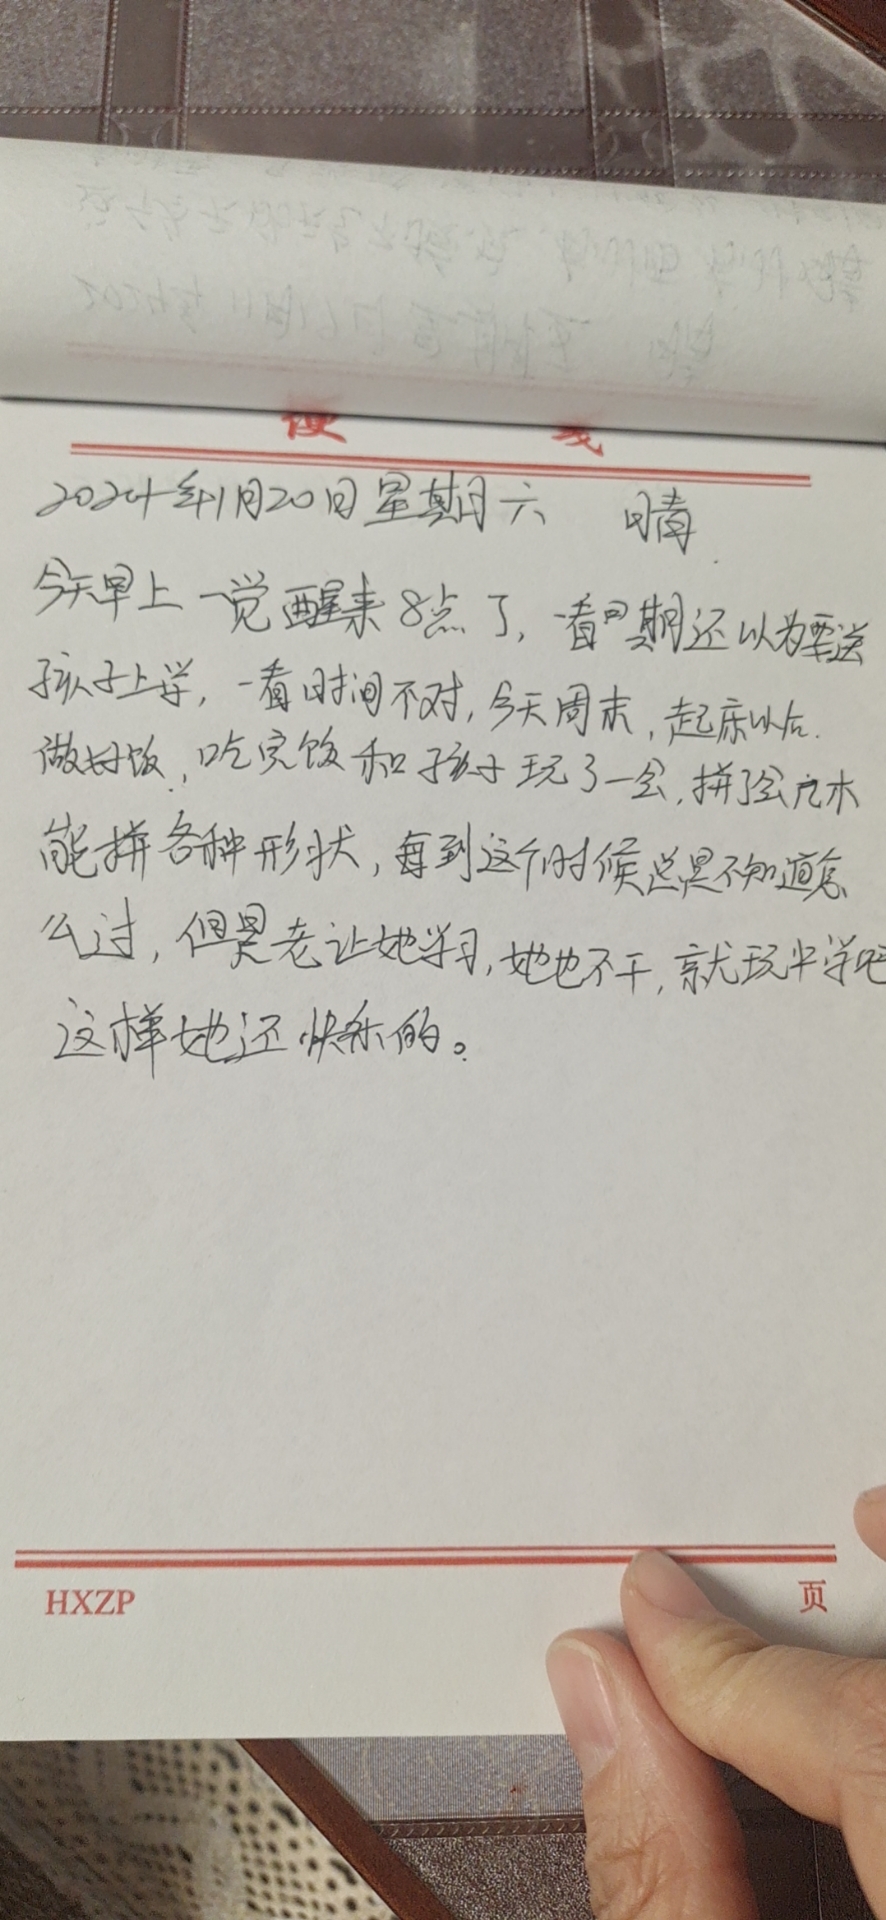 便 笺
2024年1月20日星期六 晴
今天早上一觉醒来8点了,一看日期还以为要送
孩子上学,一看时间不对,今天周末,起床以后.
做好饭,吃完饭和孩子玩了一会,拼了会积木
能拼各种形状,每到这个时候总是不知道怎
么过,但是老让她学习,她也不干,就玩中学吧
这样她还快乐的。
HXZP 页